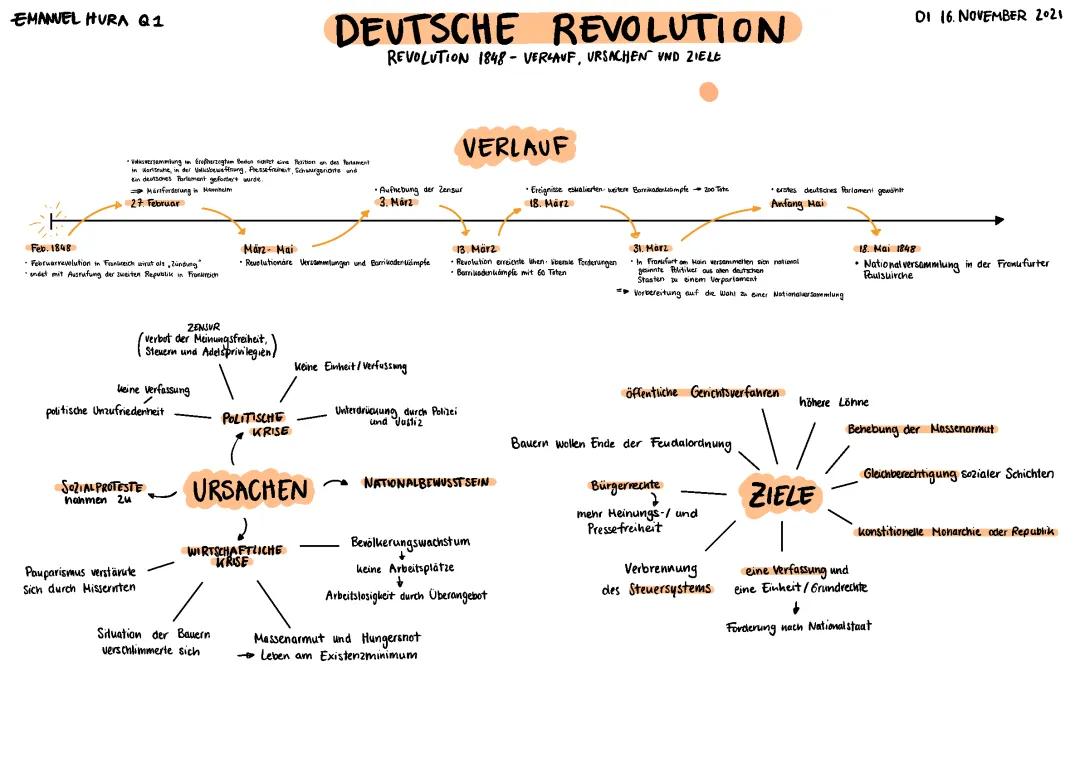 EMANUEL HURA Q1
DEUTSCHE REVOLUTION
DI 16. NOVEMBER 2021
REVOLUTION 1848 - VERLAUF, URSACHEN UND ZIELE
VERLAUF
• Volksversammlung im Großherzogtum Baden richtet eine Petition an das Parlament
in Karlsruhe, in der Volksbewaffnung, Pressefreiheit, Schwurgerichte und
ein deutsches Parlament gefordert wurde.
⇒ Märzforderung in Mannheim
27. Februar
• Aufhebung der Zensur
3. März
• Ereignisse eskalierten - weitere Barrikadenkämpfe → 200 Tote
18. März
• erstes deutsches Parlament gewählt
Anfang Mai
Feb. 1848
• Februarrevolution in Frankreich wirkt als „Zündung"
• endet mit Ausrufung der zweiten Republik in Frankreich
März - Mai
• Revolutionäre Versammlungen und Barrikadenkämpfe
13. März
• Revolution erreichte Wien - liberale Forderungen
• Barrikadenkämpfe mit 60 Toten
31. März
• In Frankfurt am Main versammelten sich national
gesinnte Politiker aus allen deutschen
Staaten zu einem Vorparlament
⇒ Vorbereitung auf die Wahl zu einer Nationalversammlung
18. Mai 1848
• Nationalversammlung in der Frankfurter
Paulskirche
ZENSUR
(verbot der Meinungsfreiheit,
Steuern und Adelsprivilegien)
keine Einheit/Verfassung
keine Verfassung
politische Unzufriedenheit
POLITISCHE
KRISE
Unterdrückung durch Polizei
und Justiz
SOZIALPROTESTE
nahmen zu
URSACHEN
NATIONALBEWUSSTSEIN
WIRTSCHAFTLICHE
KRISE
Bevölkerungswachstum
keine Arbeitsplätze
Arbeitslosigkeit durch Überangebot
Pauparismus verstärkte
sich durch Missernten
Situation der Bauern
verschlimmerte sich
Massenarmut und Hungersnot
→ Leben am Existenzminimum
öffentliche Gerichtsverfahren
höhere Löhne
Behebung der Massenarmut
Bauern wollen Ende der Feudalordnung
Gleichberechtigung sozialer Schichten
Bürgerrechte
mehr Meinungs-/ und
Pressefreiheit
ZIELE
konstitionelle Monarchie oder Republik
Verbrennung
des Steuersystems
eine Verfassung und
eine Einheit/Grundrechte
Forderung nach Nationalstaat